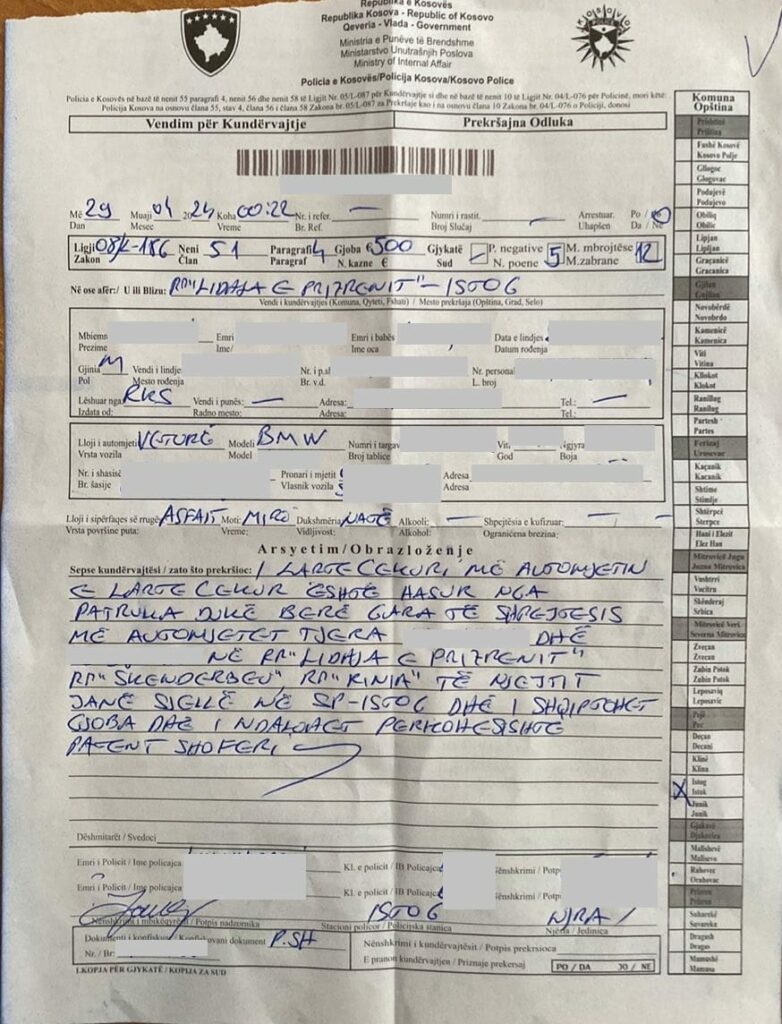 Republika e Kosovës
Republika Kosova - Republic of Kosovo
Qeveria - Vlada - Government
Ministria e Punëve të Brendshme
Ministarstvo Unutrašnjih Poslova
Ministry of Internal Affair
Policia e Kosovës/Policija Kosova/Kosovo Police
Policia e Kosovës në bazë të nenit 55 paragrafi 4, nenit 56 dhe nenit 58 të Ligjit Nr. 05/L-087 për Kundërvajtje si dhe në bazë të nenit 10 të Ligjit Nr. 04/L-076 për Policinë, mori këtë:
Policija Kosova na osnovu člana 55, stav 4, člana 56 i člana 58 Zakona br. 05/L-087 za Prekršaje kao i na osnovu člana 10 Zakona br. 04/L-076 o Policiji, donosi
Vendim për Kundërvajtje Prekršajna Odluka
Më 29 Muaji 04 2024 Koha 00:22 Nr. i refer. — Numri i rastit. — Arrestuar. Po / Jo
Dan Mesec Vreme Br. Ref. Broj Slučaj Uhapšen Da / Ne
Ligji 08/L-186 Neni 51 Paragrafi 4 Gjoba € 500 Gjykatë P. negative 5 M. mbrojtëse 12
Zakon Član Paragraf N. kazne € Sud N. poene M. zabrane
Në ose afër:/ U ili Blizu: RR"LIDHJA E PRIZRENIT" - ISTOG
Vendi i kundërvajtjes (Komuna, Qyteti, Fshati) / Mesto prekršaja (Opština, Grad, Selo)
Mbiemr Emri Emri i babës Data e lindjes
Prezime Ime/ Ime oca Datum rođenja
Gjinia M Vendi i lindje Nr. i p.sh Nr. personal
Pol Mesto rođenja Br. v.d. L. broj
Lëshuar nga RKS Vendi i punës: — Adresa: Tel.: —
Izdata od: Radno mesto: Adresa: Tel.:
Lloji i automjetit VETURË Modeli BMW Numri i targav Vit. Ngjyra
Vrsta vozila Model Broj tablice God Boja
Nr. i shasisë Pronari i mjetit Adresa
Br. šasije Vlasnik vozila Adresa
Lloji i sipërfaqes së rrugës ASFALT Moti: MIRO Dukshmëria NATË Alkooli: — Shpejtësia e kufizuar: —
Vrsta površine puta: Vreme: Vidljivost: Alkohol: Ograničena brezina:
Arsyetim/Obrazloženje
Sepse kundërvajtësi / zato što prekršioc: I LARTË CEKURI ME AUTOMJETIN
E LARTË CEKUR ËSHTË HASUR NGA
PATRULLA DUKË BERË GARA TË SHPEJTESIS
ME AUTOMJETET TJERA DHË
NË RR"LIDHJA E PRIZRENIT"
RR"SKENDERBEU" RR" TË NJEJTIT
JANË SJELLË NË SP-ISTOG DHË I SHQIPTOHET
GJOBA DHË I NDALOHET PERKOHESISHTË
PATENT SHOFERI
Dëshmitarët / Svedoci
Emri i Policit / Ime policajca Kl. e policit / IB Policajca Nënshkrimi / Potp
Emri i Policit / Ime policajca Kl. e policit / IB Policajca Nënshkrimi / Potp
ISTOG NJRA 1
Nënshkrimi i mbikëqyrësit / Potpis nadzornika Stacioni policor / Policijska stanica Njësia / Jedinica
Dokumenti i konfiskuar / Konfiskovani dokument P.SH Nënshkrimi i kundërvajtësit / Potpis prekrsioca
Nr. / Br: E pranon kundërvajtjen / Priznaje prekersaj PO / DA JO / NE
I.KOPJA PËR GJYKATË / KOPIJA ZA SUD
Komuna
Opština
Prishtinë
Priština
Fushë Kosovë
Kosovo Polje
Gllogoc
Glogovac
Podujevë
Podujevo
Obiliq
Obilic
Lipjan
Lipljan
Graçanicë
Gracanica
Gjilan
Gnjilane
Novobërdë
Novobrdo
Kamenicë
Kamenica
Viti
Vitina
Kllokot
Klokot
Ranillug
Ranilug
Partesh
Partes
Ferizaj
Urosevac
Kaçanik
Kacanik
Shtime
Stimlje
Shtërpcë
Sterpce
Hani i Elezit
Elez Han
Mitrovicë Jugu
Juzna Mitrovica
Vushtrri
Vucitrn
Skënderaj
Srbica
Mitrovicë Veri
Severna Mitrovica
Zveçan
Zvecan
Zubin Potok
Zubin Potok
Leposaviq
Leposavic
Pejë
Pec
Deçan
Decani
Klinë
Klina
X Istog
Istok
Junik
Junik
Gjakovë
Djakovica
Malishevë
Malisevo
Rahovec
Orahovac
Prizren
Prizren
Suharekë
Suvareka
Dragash
Dragas
Mamushë
Mamusa